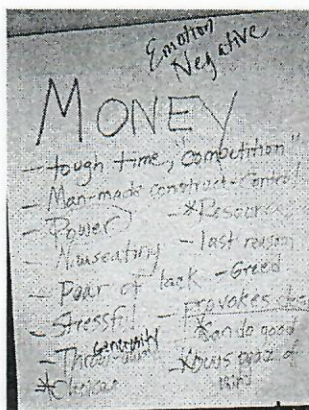 Emotion
Negative
MONEY
- tough time, "competition"
- Man-made construct - Control
- Power
- *Resource
- Nauseating
- last reason
- Fear of lack
- Greed
- Stressful
- Provokes
Generosity
*can do good
*Choices
*buys peace of
mind